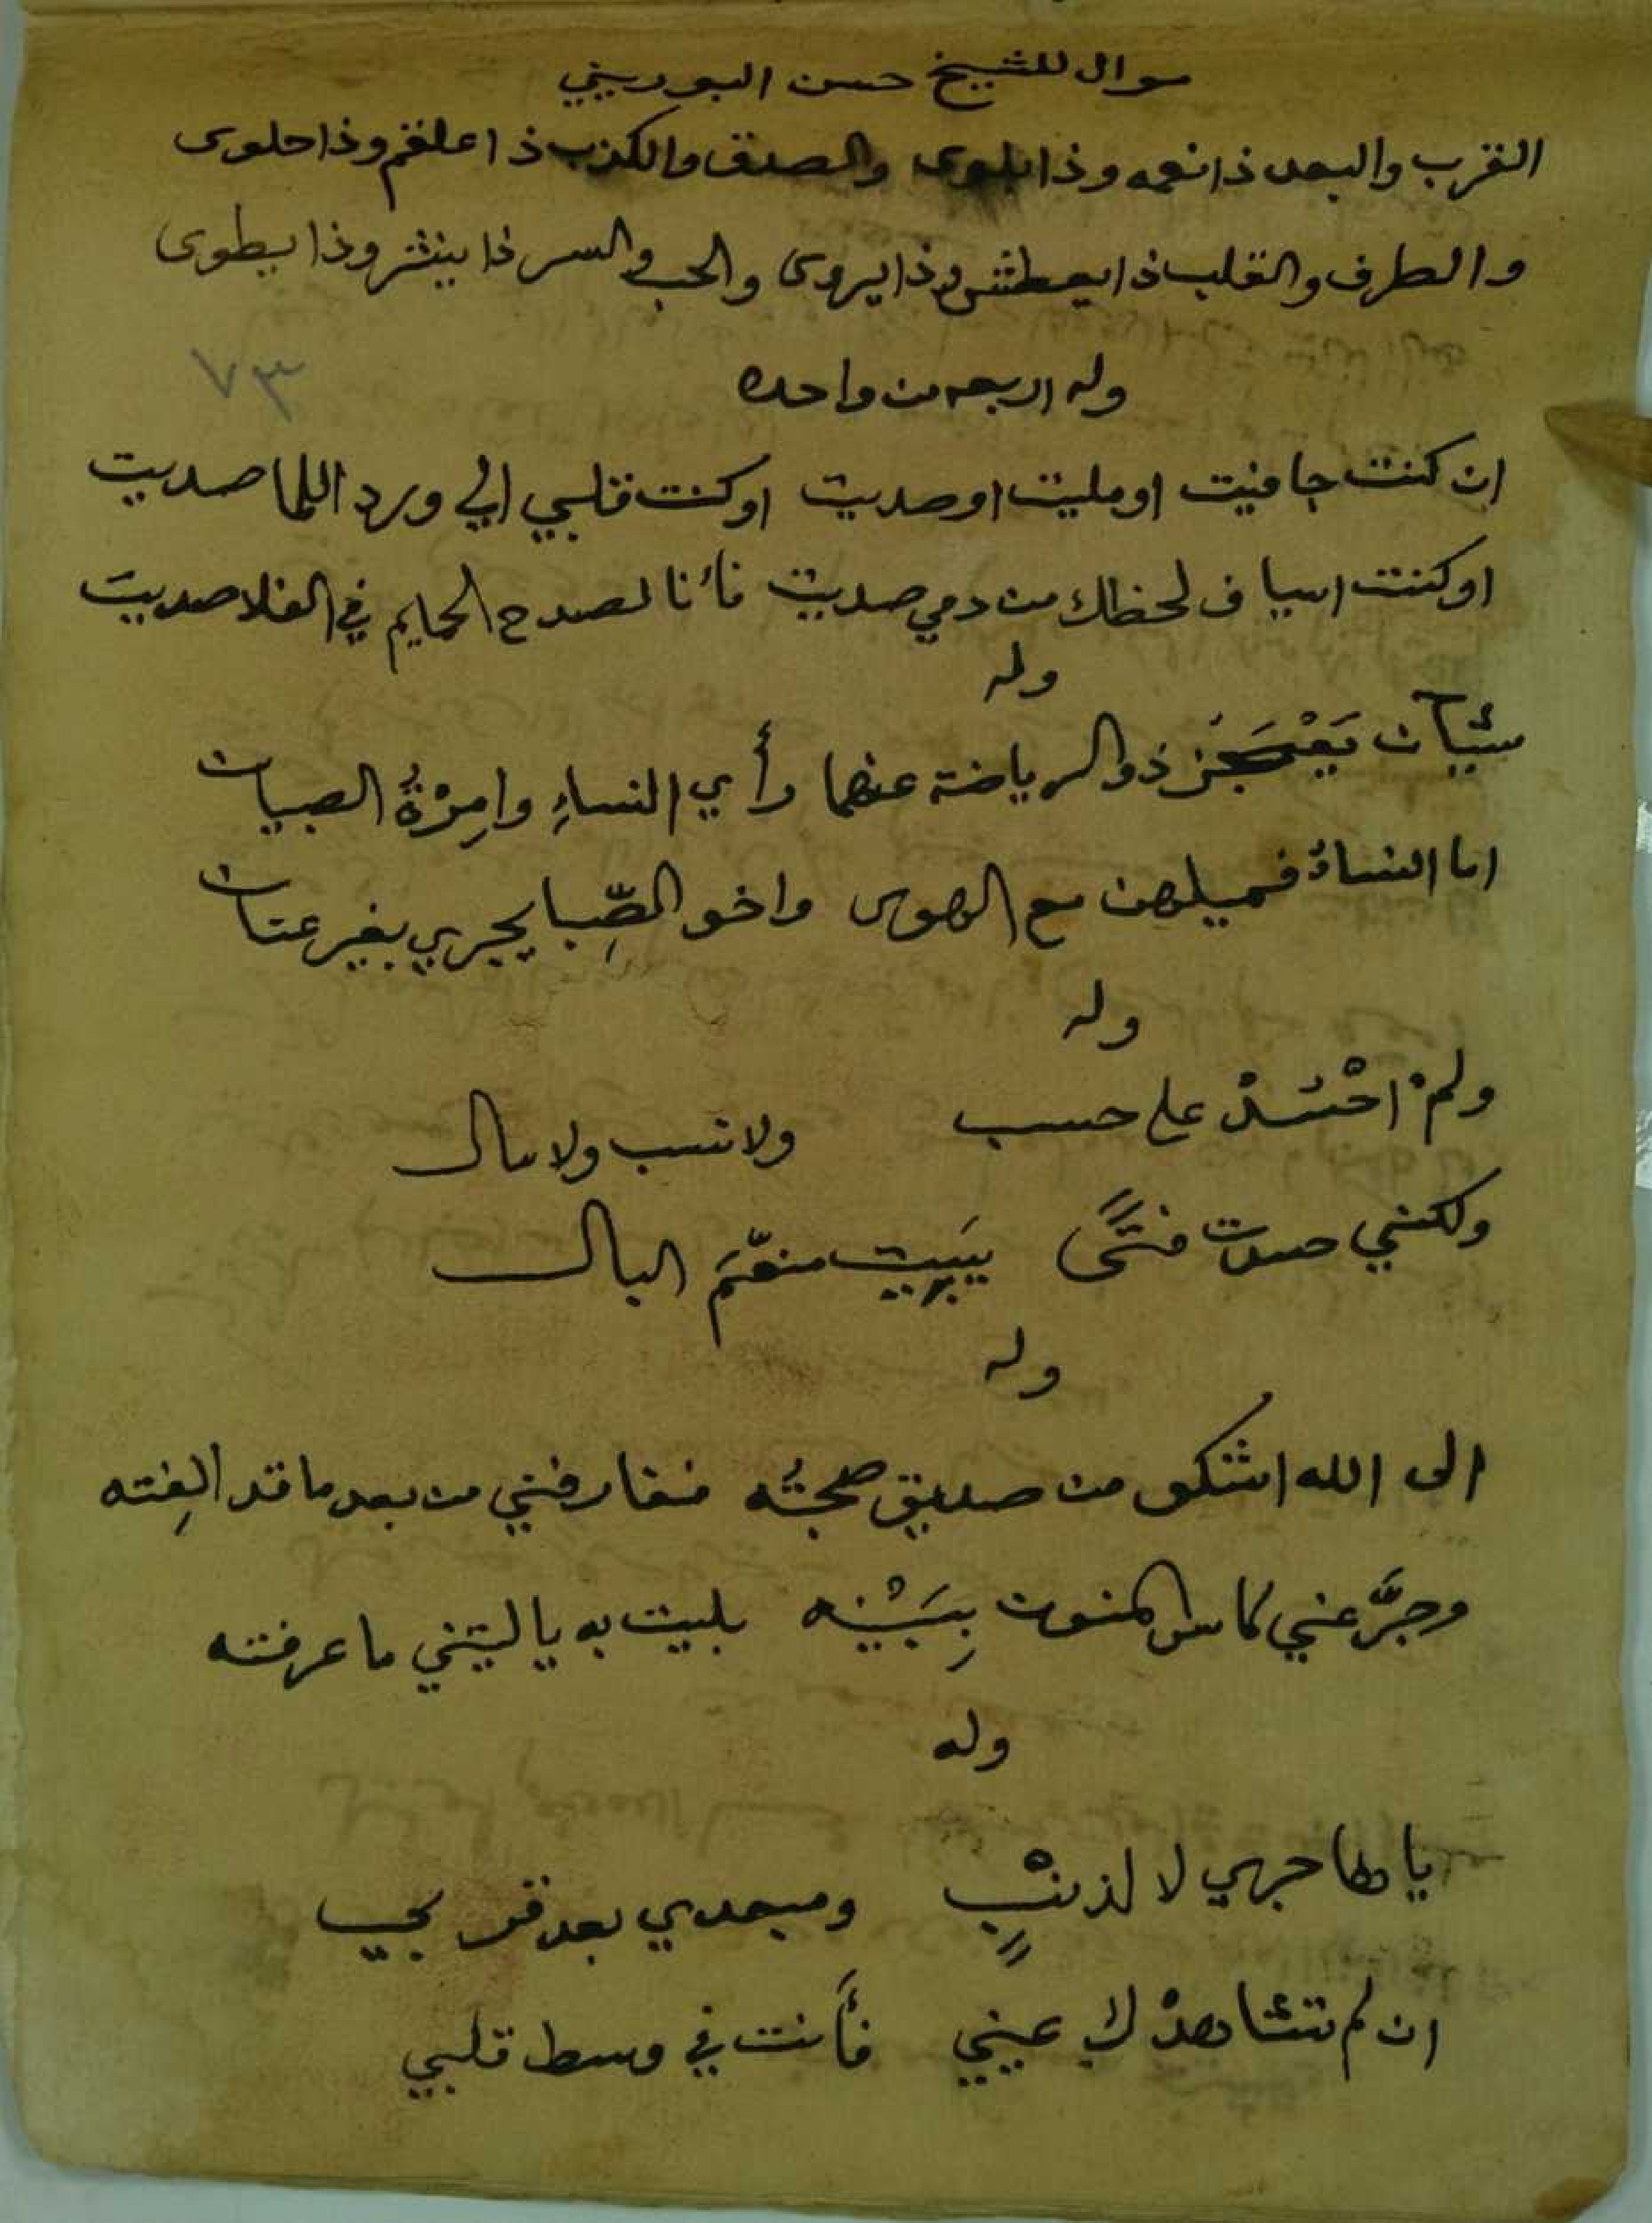 موال للشيخ حسن البوريني
القرب والبعد ذا نعمه وذا بلوى والصدق والكذب ذا علقم وذا حلوى
والطرف والقلب ذا يعطش وذا يروى والحب والسر ذا ينشر وذا يطوى
٧٣
وله اربعه من واحده
ان كنت جافيت او مليت او صديت او كنت قلبي الي ورد اللما صديت
او كنت اسياف لحظك من دمي صديت فأنا لصدح الحمايم في الفلا صديت
وله
شيآن يَعْجَز ذو الرياضة عنهما رأي النساءِ وامِرْةُ الصبيان
اما النساءُ فميلهن مع الهوى واخو الصِّبا يجري بغير عنان
وله
ولمْ احْسُدْ على حسب ولا نسب ولا مال
ولكنني حسدت فتًى يَبِيت منعَّمَ البال
وله
الى الله اشكو من صديق صحبتُه ففارقني من بعد ما قد الِفته
وجرَّعني كاس المنون بِبَيْنه بليت به يا ليتني ما عرفته
وله
يا هاجري لا لذنْبٍ ومبعدي بعد قربي
ان لم تشاهدْك عيني فأَنت في وسط قلبي